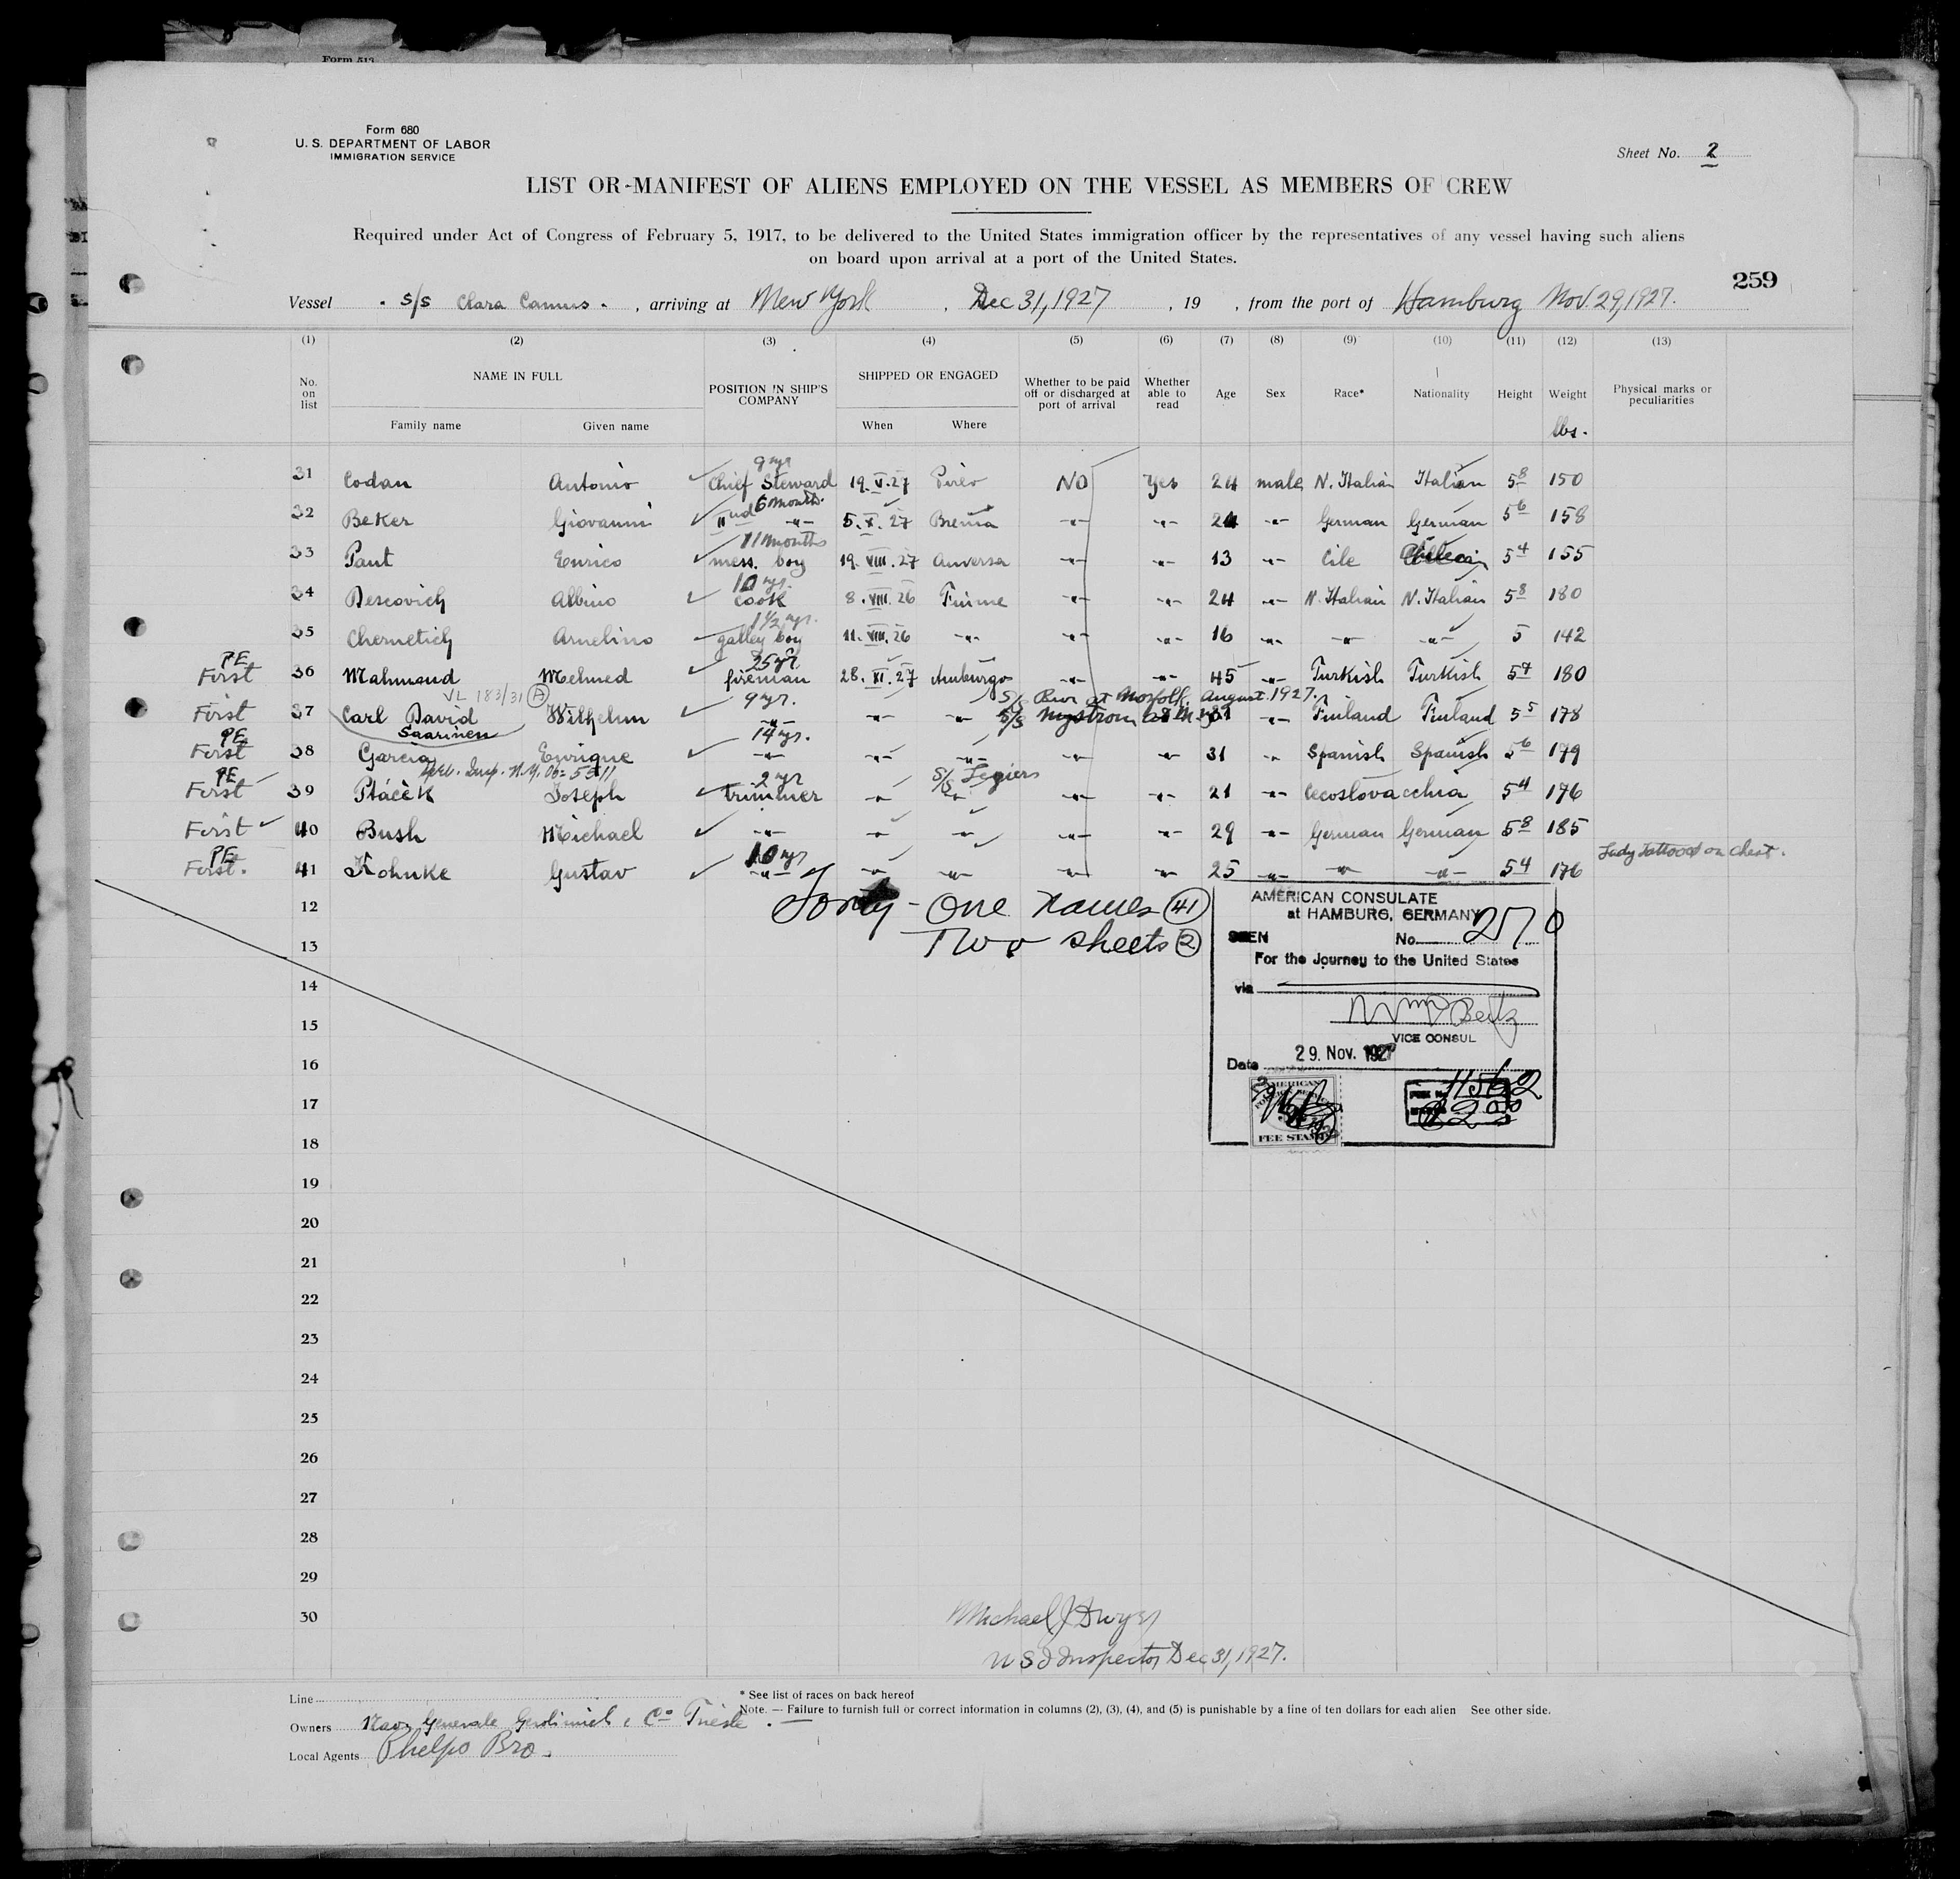 Form 513
Form 680
U. S. DEPARTMENT OF LABOR
IMMIGRATION SERVICE
Sheet No. 2
LIST OR MANIFEST OF ALIENS EMPLOYED ON THE VESSEL AS MEMBERS OF CREW
Required under Act of Congress of February 5, 1917, to be delivered to the United States immigration officer by the representatives of any vessel having such aliens
on board upon arrival at a port of the United States.
259
Vessel S/S Clara Camus , arriving at New York , Dec 31, 1927 , 19 , from the port of Hamburg Nov. 29, 1927.
(1) (2) (3) (4) (5) (6) (7) (8) (9) (10) (11) (12) (13)
No. on list NAME IN FULL Family name Given name POSITION IN SHIP'S COMPANY SHIPPED OR ENGAGED When Where Whether to be paid off or discharged at port of arrival Whether able to read Age Sex Race* Nationality Height Weight lbs. Physical marks or peculiarities
9 yrs
31 Codan Antonio Chief Steward 19. V. 27 NO Yes 24 male N. Italian Italian 5 8 150
6 months.
32 Beker Giovanni IInd -"- 5. X. 27 Brema -"- -"- 24 -"- German German 5 6 158
11 months
33 Paut Enrico mess. boy 19. VIII. 27 Anversa -"- -"- 13 -"- Cile 5 4 155
10 yrs.
34 Descovich Albino cook 8. VIII. 26 Fiume -"- -"- 24 -"- N. Italian N. Italian 5 8 180
1 1/2 yrs.
35 Chernetich Arnelino galley boy 11. VIII. 26 -"- -"- -"- 16 -"- -"- -"- 5 142
PE 25 yr
First 36 Mahmoud Mehmed fireman 28. XI. 27 Amburgo -"- -"- 45 -"- Turkish Turkish 5 4 180
VL 183/31 (A) 9 yr. at Norfolk. August. 1927.
First 37 Carl David Wilhelm -"- -"- -"- S/S Nystrom -"- Finland Finland 5 5 178
Saarinen
PE 14 yr.
First 38 Garcia Enrique -"- -"- -"- -"- -"- 31 -"- Spanish Spanish 5 6 179
PE 2 yr S/S Legiers
First 39 Ptácek Joseph trimmer -"- -"- -"- -"- 21 -"- Cecoslovacchia 5 4 176
First 40 Bush Michael -"- -"- -"- -"- -"- 29 -"- German German 5 8 185
PE 10 yrs Lady Tattooed on chest.
First. 41 Kohnke Gustav -"- -"- -"- -"- -"- 25 -"- -"- -"- 5 4 176
12 Forty-One Names (41)
13 Two sheets (2)
AMERICAN CONSULATE
at HAMBURG, GERMANY
SEEN No. 2570
For the Journey to the United States
via
VICE CONSUL
Date 29. Nov. 1927
AMERICAN
FEE STAMP
11562
14
15
16
17
18
19
20
21
22
23
24
25
26
27
28
29
30
Michael J Dwyer
U S I Inspector Dec 31, 1927.
Line
* See list of races on back hereof
Note. — Failure to furnish full or correct information in columns (2), (3), (4), and (5) is punishable by a fine of ten dollars for each alien See other side.
Owners Nav. Generale Gerolimich & Co Trieste
Local Agents Phelps Bro.